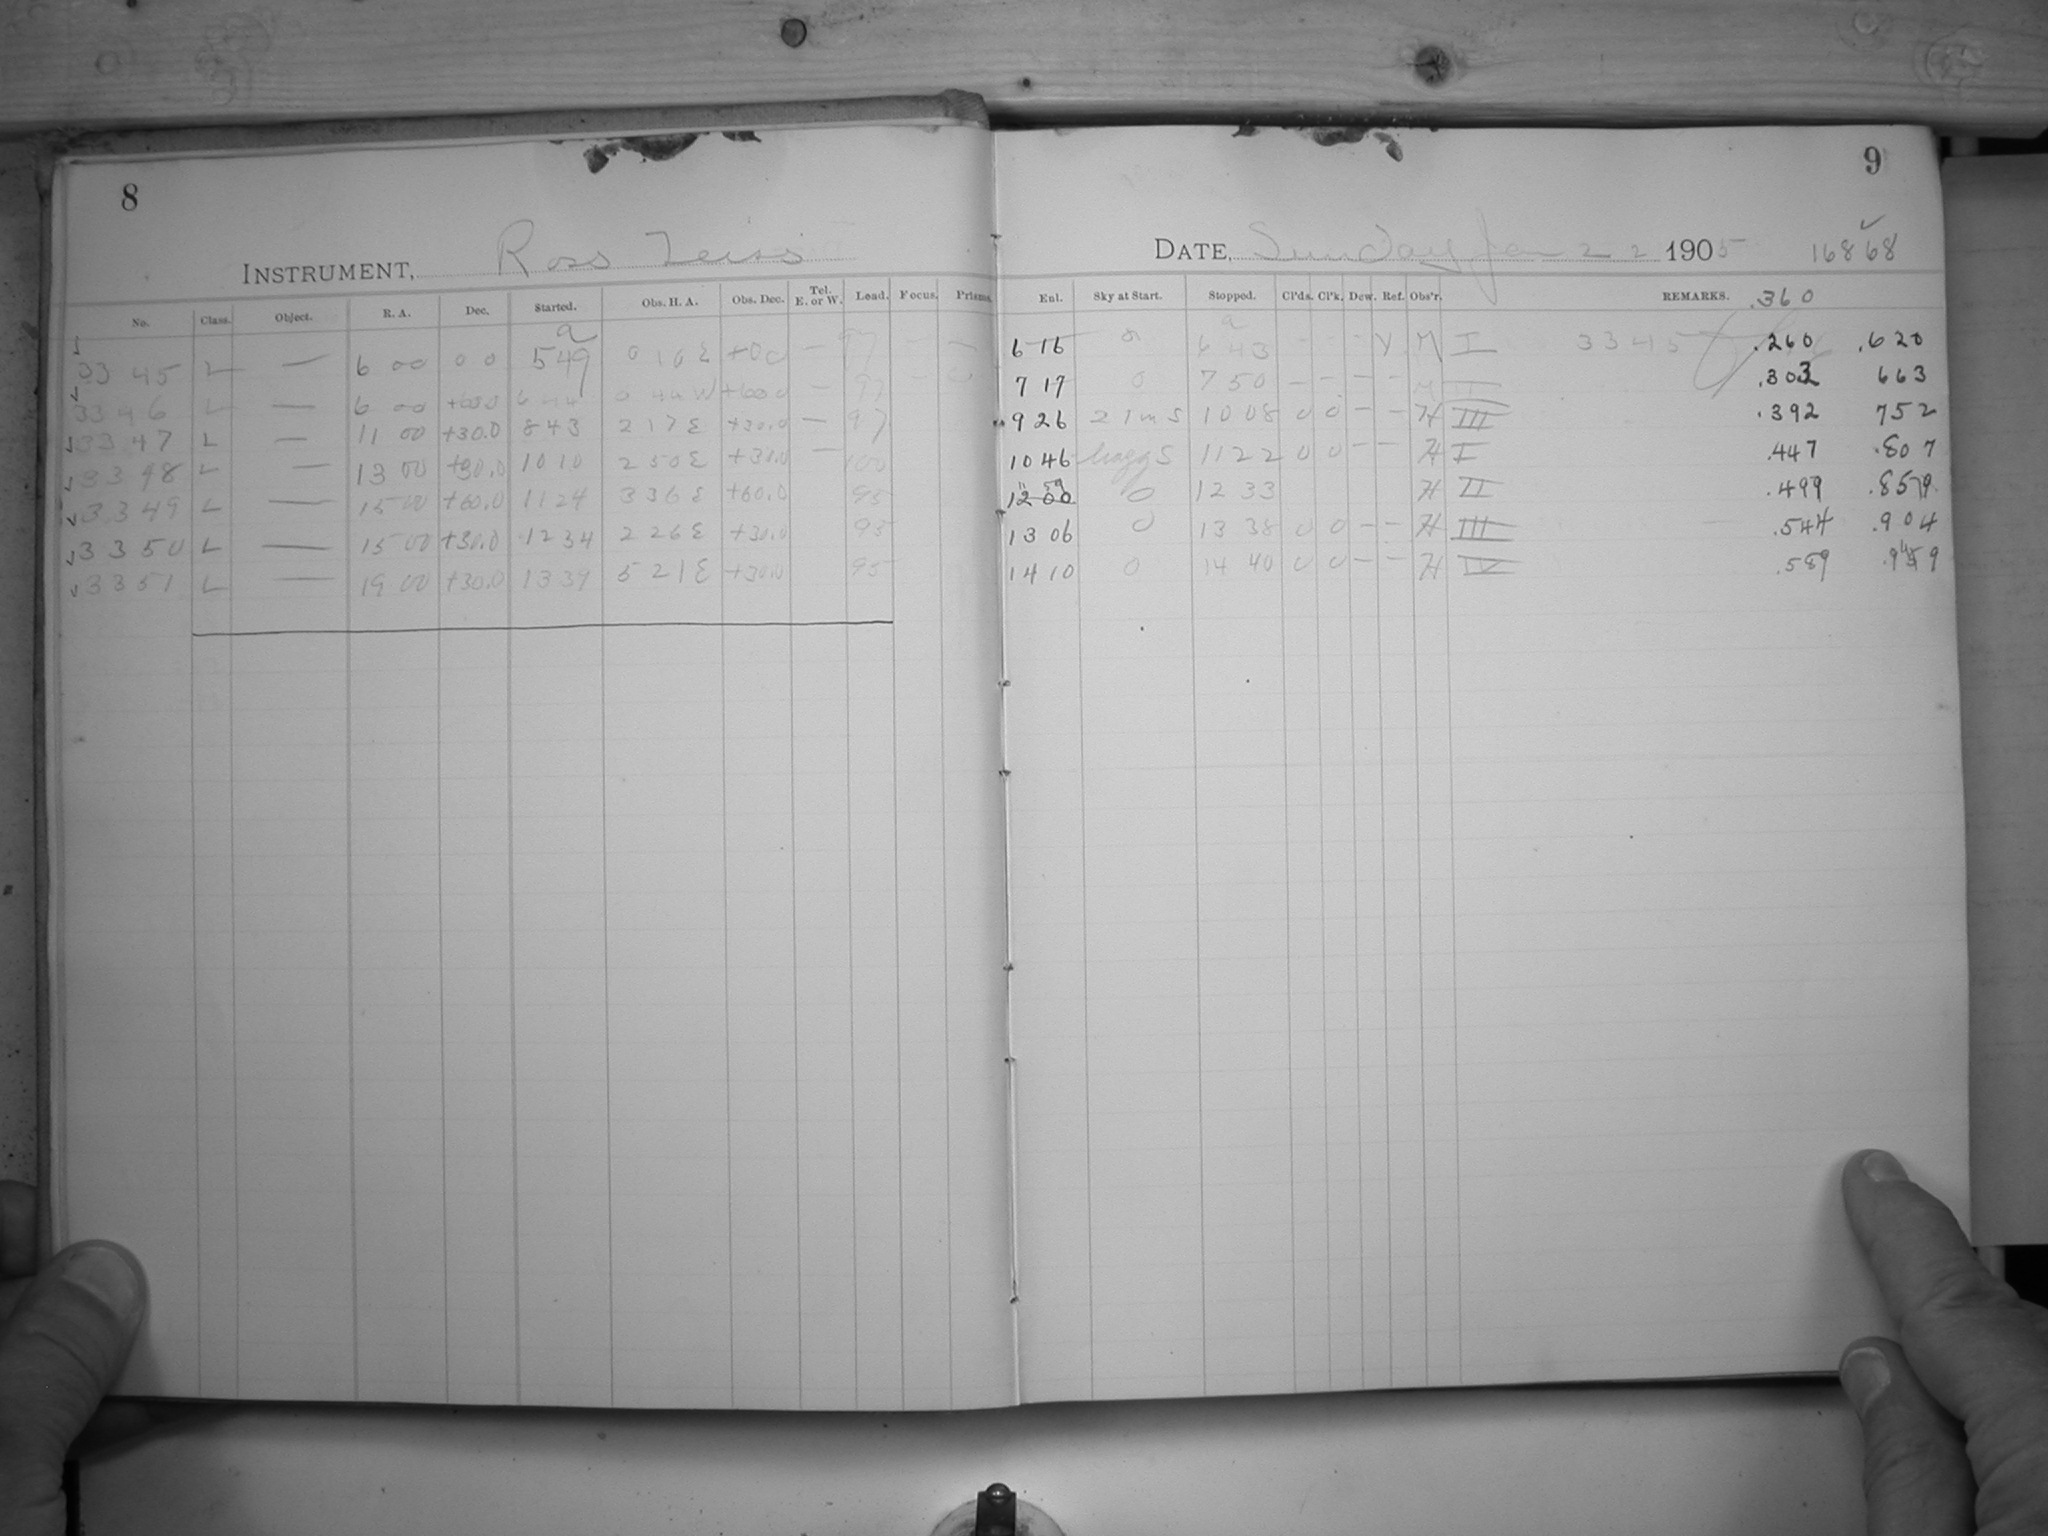 8
INSTRUMENT, Ross Zeiss
No. Class. Object. R. A. Dec. Started. Obs. H. A. Obs. Dec. Tel. E. or W. Load. Focus. Prisms.
3345 L — 6 00 00 a 549 0 10 E +00 — 97 — —
3346 L — 6 00 +60.0 6 44 0 44 W +60.0 — 97
3347 L — 11 00 +30.0 8 43 2 17 E +30.0 — 97
3348 L — 13 00 +30.0 10 10 2 50 E +30.0 — 100
3349 L — 15 00 +60.0 11 24 3 36 E +60.0 95
3350 L — 15 00 +30.0 12 34 2 26 E +30.0 95
3351 L — 19 00 +30.0 13 39 5 21 E +30.0 95
9
DATE, Sunday Jan 22 1905 16868
Eul. Sky at Start. Stopped. Cl'ds. Cl'k. Dew. Ref. Obs'r. REMARKS. .360
6 16 a 6 43 - - - Y M I 3345 .260 .620
7 17 0 7 50 — — — — M II .303 663
9 26 2 1m S 10 08 0 0 — — H III .392 752
10 46 hazy S 11 22 0 0 — — H I .447 .807
11 59 12 00 0 12 33 H II .499 .859
13 06 0 13 38 0 0 — — H III .544 .904
14 10 0 14 40 0 0 — — H IV .589 .949